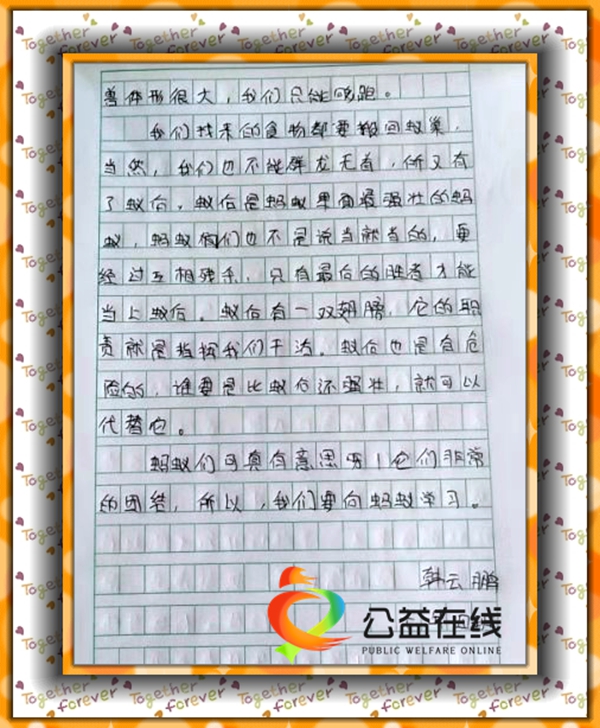 Together forever
体形很大，我们只能跑。
我们找来的食物都要搬回蚁巢，
当然，我们也不能群龙无首，所又有
了蚁后。蚁后是蚂蚁里面最强壮的蚂
蚁，蚂蚁们也不是说当就当的，要
经过互相残杀，只有最后的胜者才能
当上蚁后。蚁后有一双翅膀，它的职
责就是指挥我们干活。蚁后也是有危
险的，谁要是比蚁后还强壮，就可以
代替它。
蚂蚁们可真有意思呀！它们非常
的团结，所以，我们要向蚂蚁学习。
韩云鹏
公益在线
PUBLIC WELFARE ONLINE